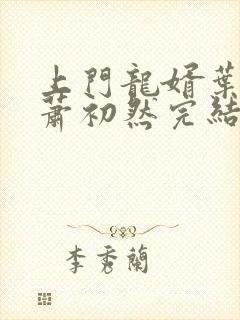 上門龍婿葉
蕭初然完結
李秀蘭